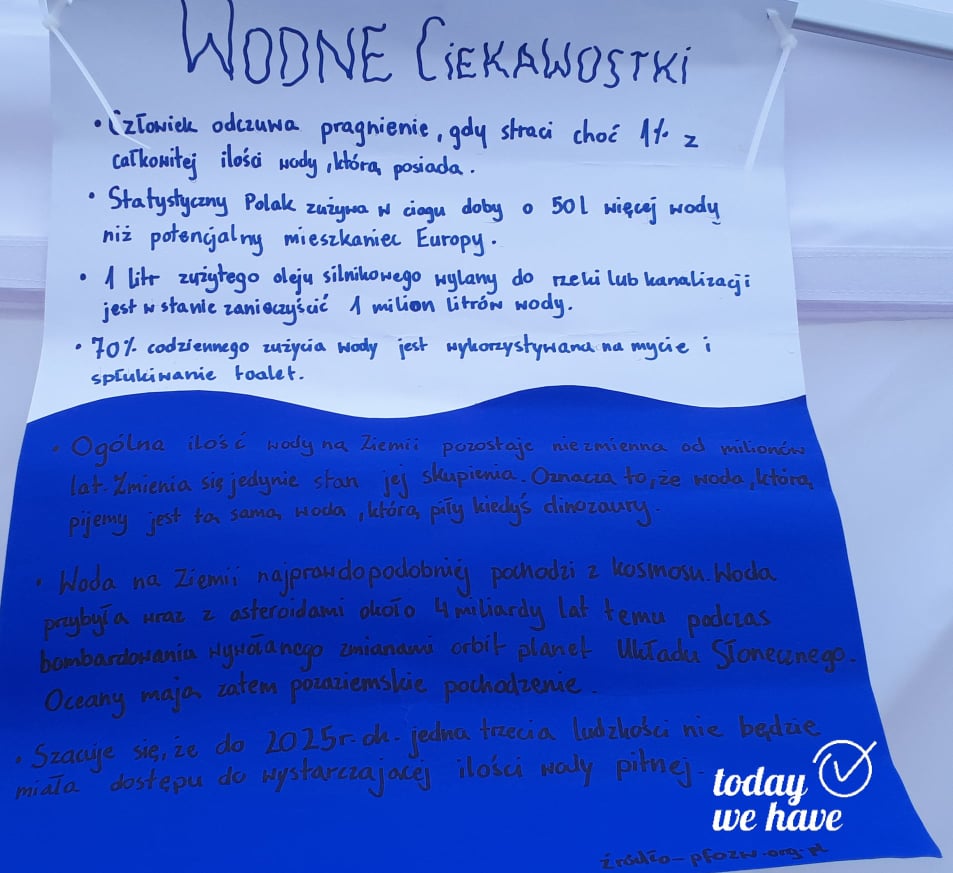 WODNE CIEKAWOSTKI
• Człowiek odczuwa pragnienie, gdy straci choć 1% z
całkowitej ilości wody, którą posiada.
• Statystyczny Polak zużywa w ciągu doby o 50l więcej wody
niż potencjalny mieszkaniec Europy.
• 1 litr zużytego oleju silnikowego wylany do rzeki lub kanalizacji
jest w stanie zanieczyścić 1 milion litrów wody.
• 70% codziennego zużycia wody jest wykorzystywana na mycie i
spłukiwanie toalet.
• Ogólna ilość wody na Ziemii pozostaje niezmienna od milionów
lat. Zmienia się jedynie stan jej skupienia. Oznacza to, że woda, którą
pijemy jest tą samą wodą, którą piły kiedyś dinozaury.
• Woda na Ziemii najprawdopodobniej pochodzi z kosmosu. Woda
przybyła wraz z asteroidami około 4 miliardy lat temu podczas
bombardowania wywołanego zmianami orbit planet Układu Słonecznego.
Oceany mają zatem pozaziemskie pochodzenie.
• Szacuje się, że do 2025r. ok. jedna trzecia ludzkości nie będzie
miała dostępu do wystarczającej ilości wody pitnej.
today
we have
źródło - pfozw.org.pl